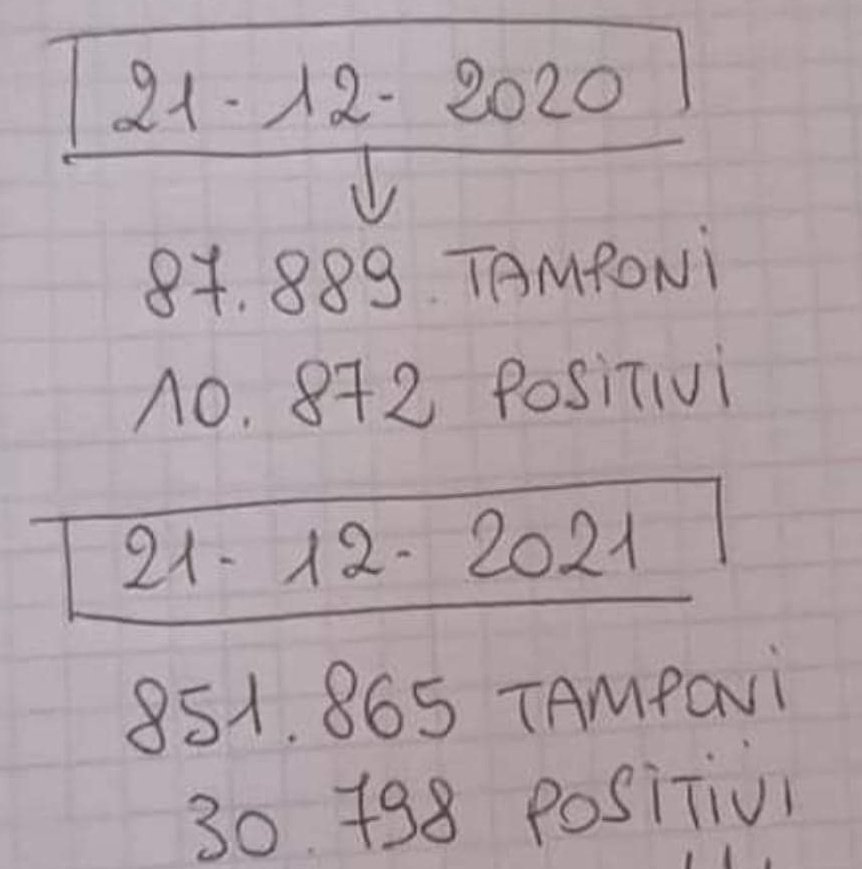 21-12-2020
87.889 TAMPONi
10.872 POSiTIVi
21-12-2021
851.865 TAMPONi
30.798 POSiTiVi